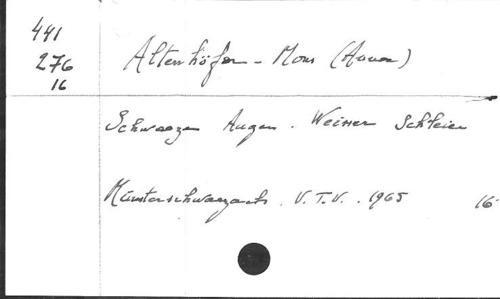 441
276
16
Altenhöfer - Mons (Anna)
Schwarze Augen . Weisser Schleier
Münsterschwarzach . V.T.V. . 1965 16